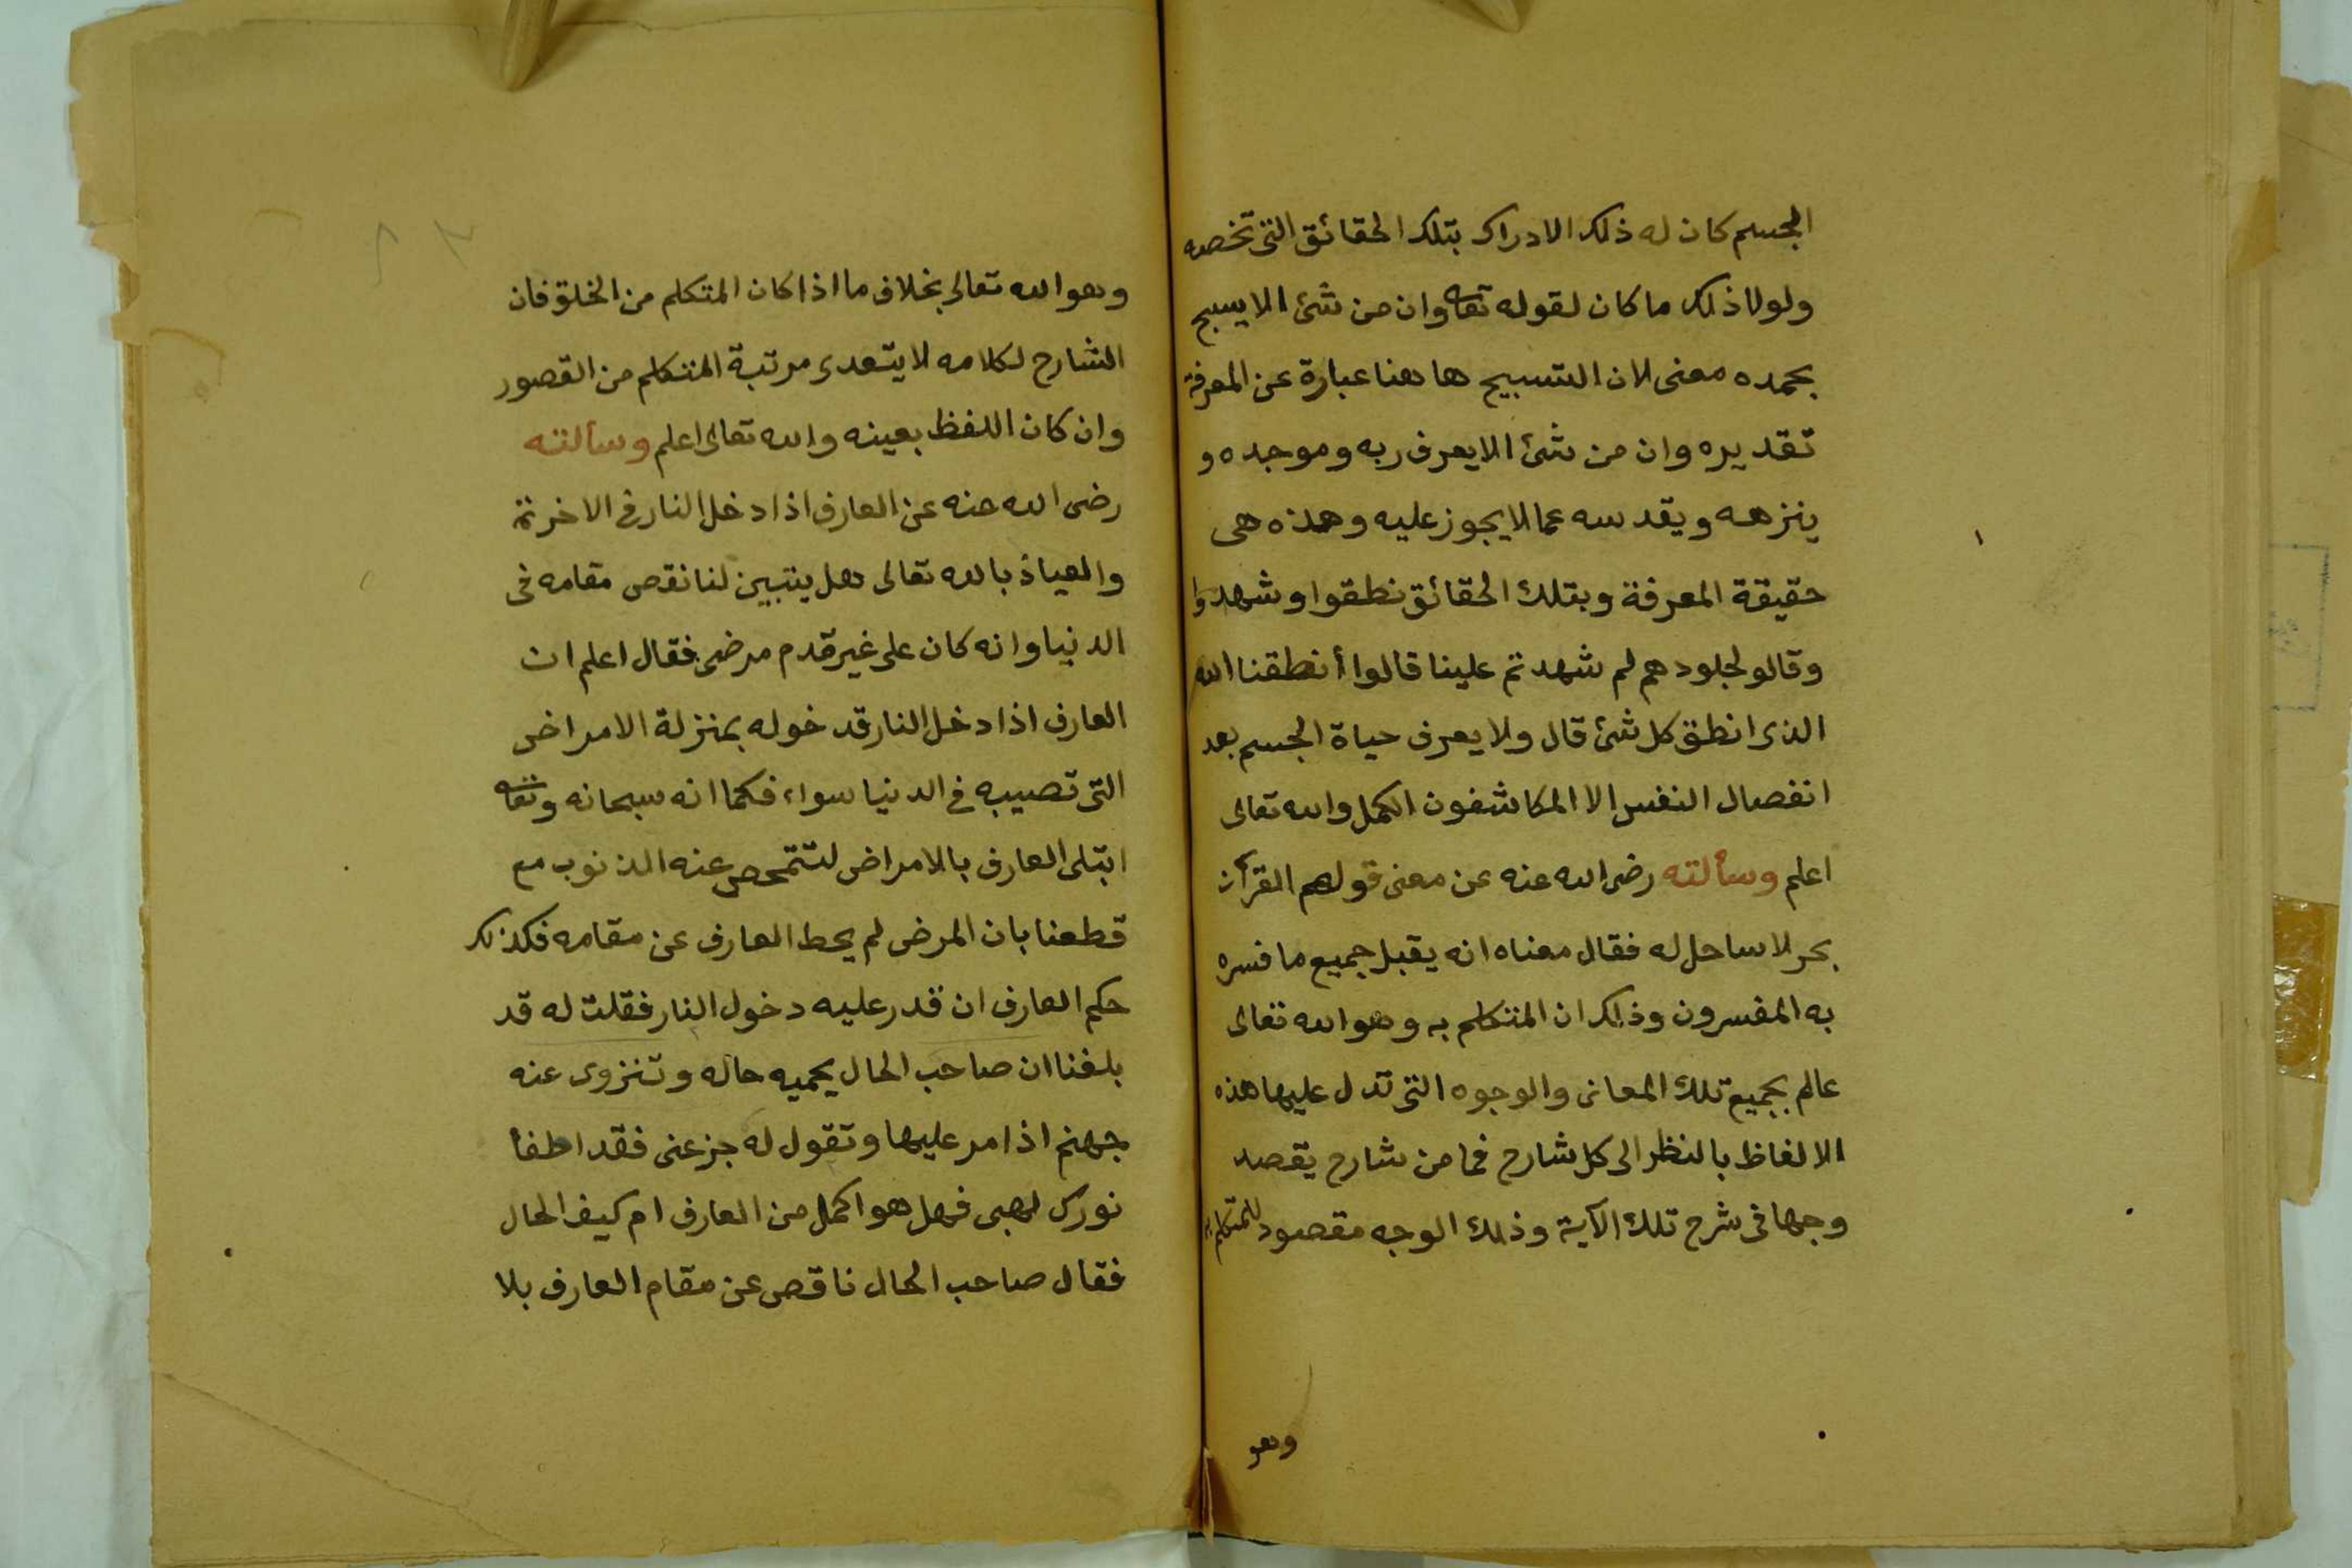 الجسم كان له ذلك الادراك بتلك الحقائق التى تخصه
ولولا ذلك ما كان لقوله تعا وان من شئ الا يسبح
بحمده معنى لان التسبيح ها هنا عبارة عن المعرفة
تقديره وان من شئ الا يعرف ربه وموجده و
ينزهه ويقدسه عما لا يجوز عليه وهذه هى
حقيقة المعرفة وبتلك الحقائق نطقوا وشهدوا
وقالو لجلودهم لم شهدتم علينا قالوا أنطقنا الله
الذى انطق كل شئ قال ولا يعرف حياة الجسم بعد
انفصال النفس الا المكاشفون الكمل والله تعالى
اعلم وسألته رضى الله عنه عن معنى قولهم القرآن
بحر لا ساحل له فقال معناه انه يقبل جميع ما فسره
به المفسرون وذلك ان المتكلم به وهو الله تعالى
عالم بجميع تلك المعانى والوجوه التى تدل عليها هذه
الالفاظ بالنظر الى كل شارح فما من شارح يقصد
وجها فى شرح تلك الآية وذلك الوجه مقصود للمتكلم به
وهو
وهو الله تعالى بخلاف ما اذا كان المتكلم من الخلق فان
الشارح لكلامه لا يتعدى مرتبة المتكلم من القصور
وان كان اللفظ بعينه والله تعالى اعلم وسألته
رضى الله عنه عن العارف اذا دخل النار فى الاخرة
والعياذ بالله تعالى هل يتبين لنا نقص مقامه فى
الدنيا وانه كان على غير قدم مرضى فقال اعلم ان
العارف اذا دخل النار قد خوله بمنزلة الامراض
التى تصيبه فى الدنيا سواء فكما انه سبحانه وتعا
ابتلى العارف بالامراض لتتمحص عنه الذنوب مع
قطعنا بان المرض لم يحط العارف عن مقامه فكذلك
حكم العارف ان قدر عليه دخول النار فقلت له قد
بلغنا ان صاحب الحال يحميه حاله وتنزوى عنه
جهنم اذا مر عليها وتقول له جز عنى فقد اطفأ
نورك لهبى فهل هو اكمل من العارف ام كيف الحال
فقال صاحب الحال ناقص عن مقام العارف بلا